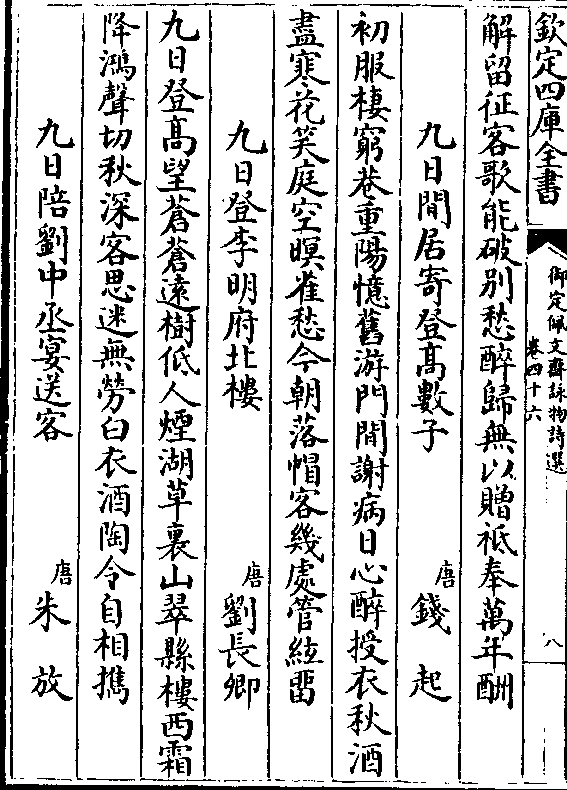 欽定四庫全書
御定佩文齋詠物詩選
卷四十六
八
解留征客歌能破別愁醉歸無以贈祗奉萬年酬
九日閒居寄登髙數子
唐
錢起
初服棲窮巷重陽憶舊游門閒謝病日心醉授衣秋酒
盡寒花笑庭空暝雀愁今朝落帽客幾處管絃畱
九日登李明府北樓
唐
劉長卿
九日登髙望蒼蒼遠樹低人煙湖草裏山翠縣樓西霜
降鴻聲切秋深客思迷無勞白衣酒陶令自相擕
九日陪劉中丞宴送客
唐
朱放